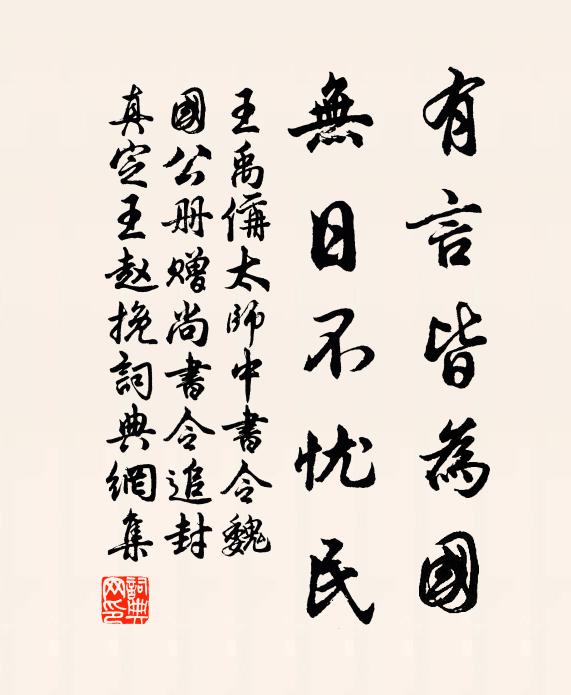 有言皆為國
無日不忧民
王禹偁太师中書令魏
國公册赠尚書令追封
真定王赵挽詞典網集
詞典网印